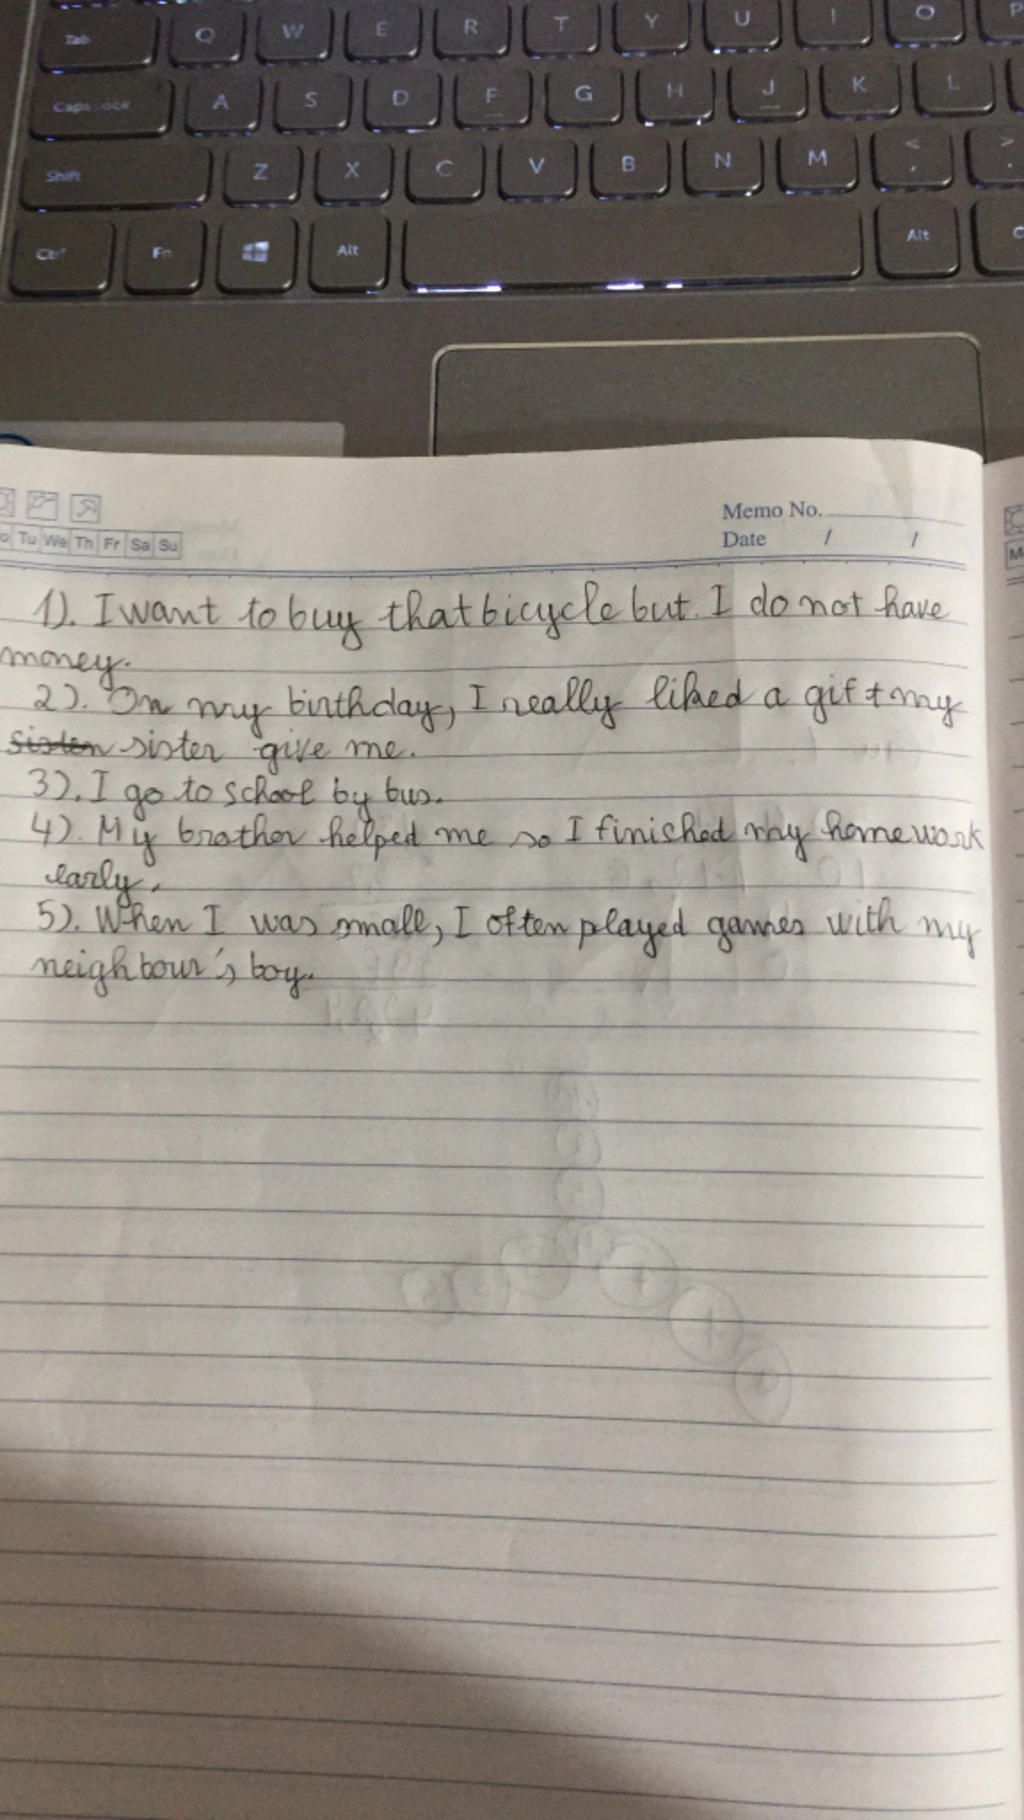 Tab Q W E R T Y U I O P
Caps Lock A S D F G H J K L
Shift Z X C V B N M < , > .
Ctrl Fn Alt Alt C
Memo No.
Date / /
Tu We Th Fr Sa Su
1). I want to buy that bicycle but I do not have
money.
2). On my birthday, I really liked a gift my
sisten sister give me.
3). I go to school by bus.
4). My brother helped me so I finished my homework
early.
5). When I was small, I often played games with my
neighbour's boy.